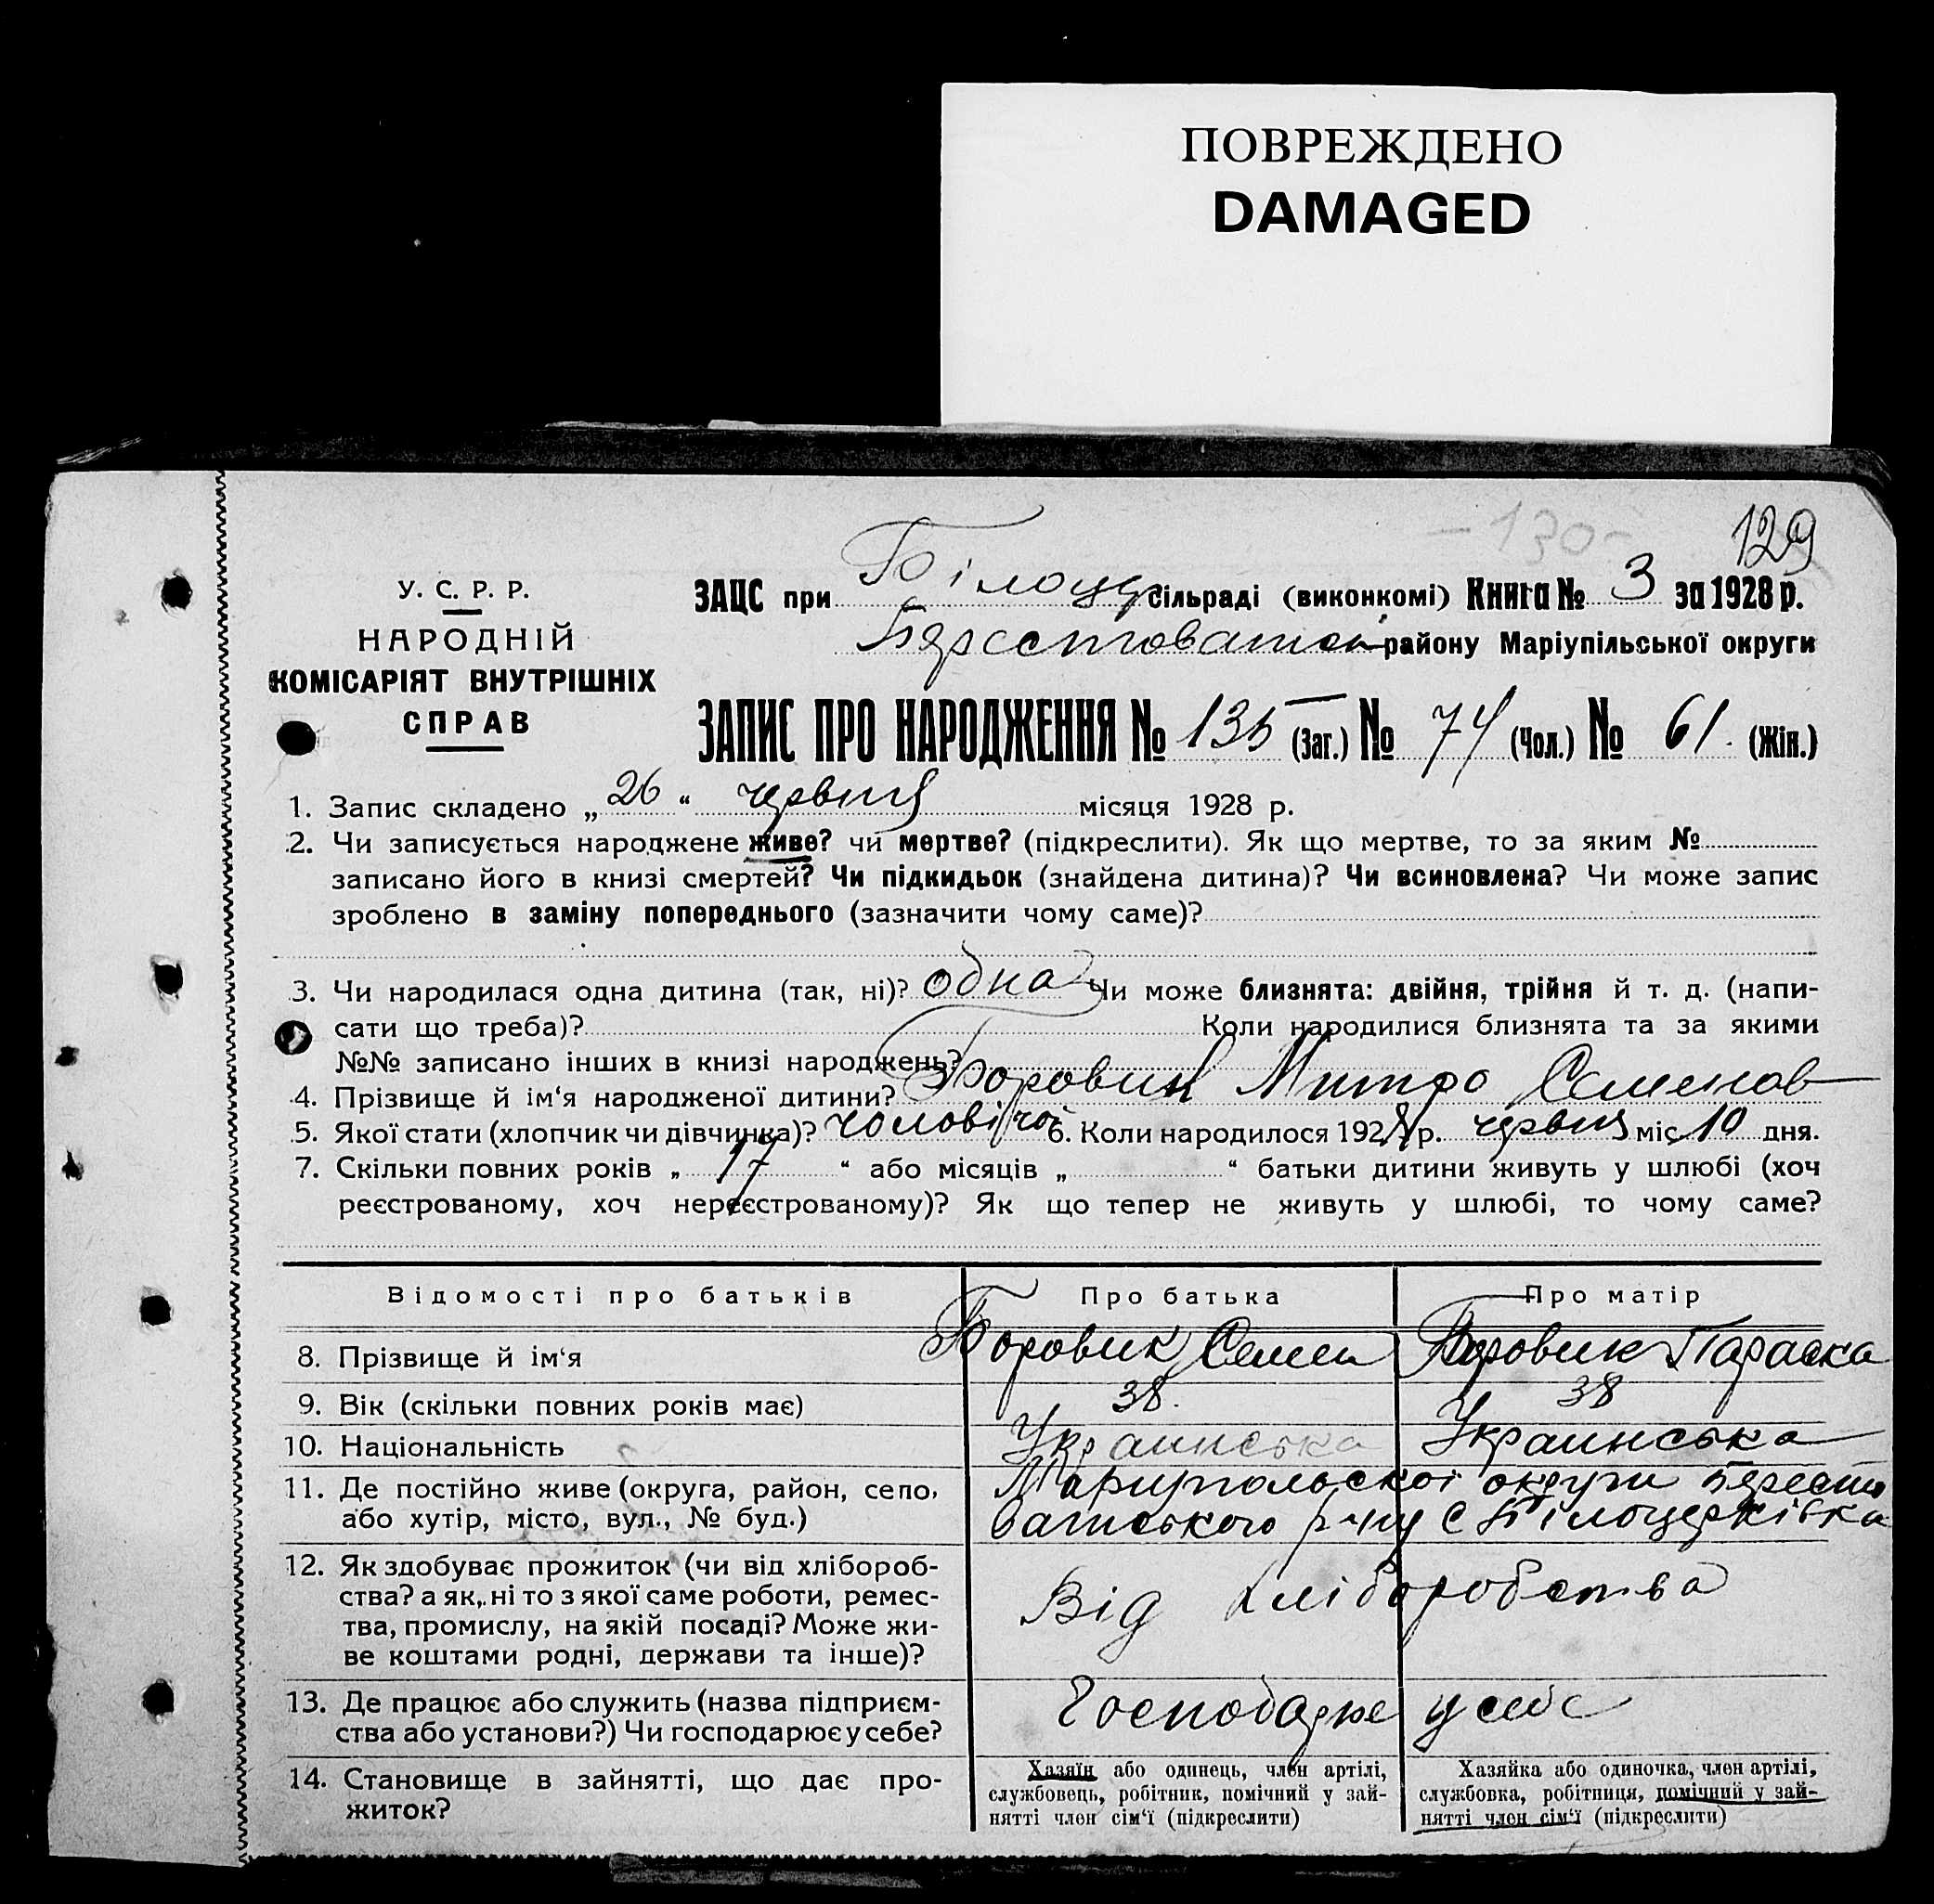 ПОВРЕЖДЕНО
DAMAGED
-130-
129
У. С. Р. Р.
НАРОДНІЙ
КОМІСАРІЯТ ВНУТРІШНІХ
СПРАВ
ЗАЦС при Білоцер сільраді (виконкомі) Книга № 3 за 1928 р.
району Маріупільської округи
ЗАПИС ПРО НАРОДЖЕННЯ № 135 (Заг.) № 74 (Чол.) № 61. (Жін.)
1. Запис складено „ 26 “ червня місяця 1928 р.
2. Чи записується народжене живе? чи мертве? (підкреслити). Як що мертве, то за яким №
записано його в книзі смертей? Чи підкидьок (знайдена дитина)? Чи всиновлена? Чи може запис
зроблено в заміну попереднього (зазначити чому саме)?
3. Чи народилася одна дитина (так, ні)? одна Чи може близнята: двійня, трійня й т. д. (напи-
сати що треба)? Коли народилися близнята та за якими
№№ записано інших в книзі народжень?
4. Прізвище й ім‘я народженої дитини? Боровик Митро Семенов
5. Якої стати (хлопчик чи дівчинка)? чоловічої 6. Коли народилося 1928 р. червня міс. 10 дня.
7. Скільки повних років „ 17 “ або місяців „ “ батьки дитини живуть у шлюбі (хоч
реєстрованому, хоч нереєстрованому)? Як що тепер не живуть у шлюбі, то чому саме?
Відомості про батьків Про батька Про матір
8. Прізвище й ім‘я Боровик Семен Боровик Параска
9. Вік (скільки повних років має) 38. 38
10. Національність Украинська Украинська
11. Де постійно живе (округа, район, село, Мариупольскоі округи Берести
або хутір, місто, вул., № буд.) ватського р-ну С Білоцерківка
12. Як здобуває прожиток (чи від хлібороб-
ства? а як, ні то з якої саме роботи, ремес-
тва, промислу, на якій посаді? Може жи-
ве коштами родні, держави та інше)?
Від хліборобства
13. Де працює або служить (назва підприєм-
ства або установи?) Чи господарює у себе?
Господарює у себе
14. Становище в зайнятті, що дає про-
житок?
Хазяїн або одинець, член артілі,
службовець, робітник, помічний у зай-
нятті член сім‘ї (підкреслити)
Хазяйка або одиночка, член артілі,
службовка, робітниця, помічний у зай-
нятті член сім‘ї (підкреслити)